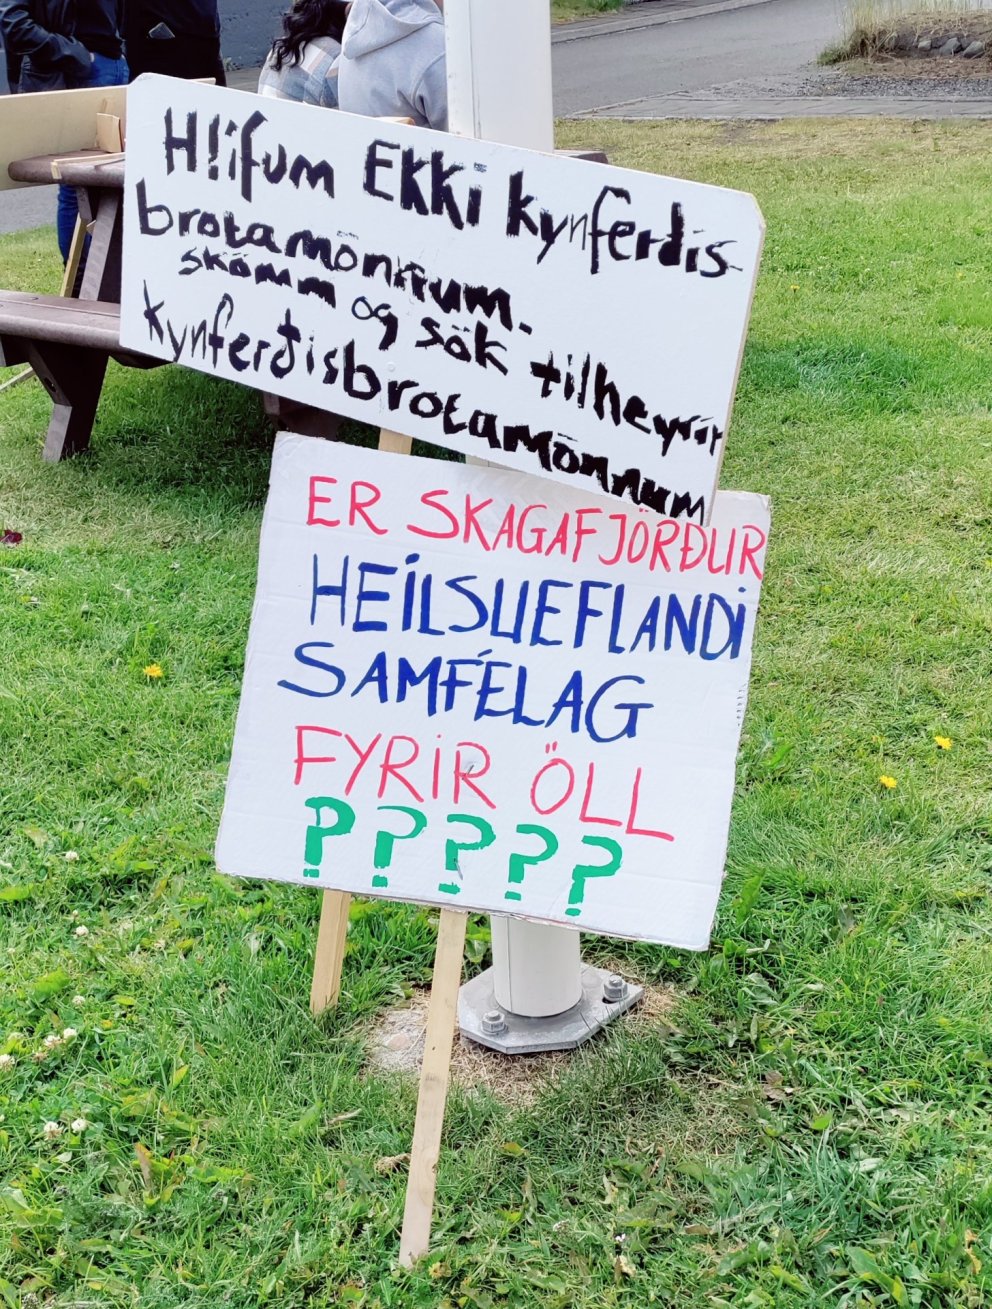 Hlífum EKKi kynferðis-
brotamönnum.
skömm og sök tilheyrir
kynferðisbrotamönnum
ER SKAGAFJÖRÐUR
HEiLSUEFLANDi
SAMFÉLAG
FYRiR ÖLL
?????